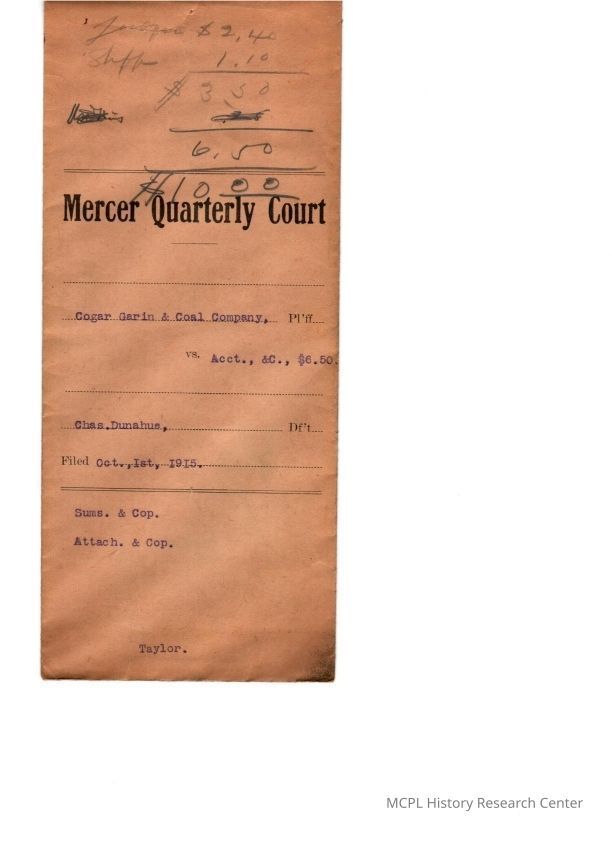 Judge $ 2,40
Shff 1.10
$ 3.50
6.50
$10.00
Mercer Quarterly Court
Cogar Garin & Coal Company, Pl'ff
vs. Acct., &C., $6.50.
Chas.Dunahue, Df't
Filed Oct.,Ist, I9I5.
Sums. & Cop.
Attach. & Cop.
Taylor.
MCPL History Research Center